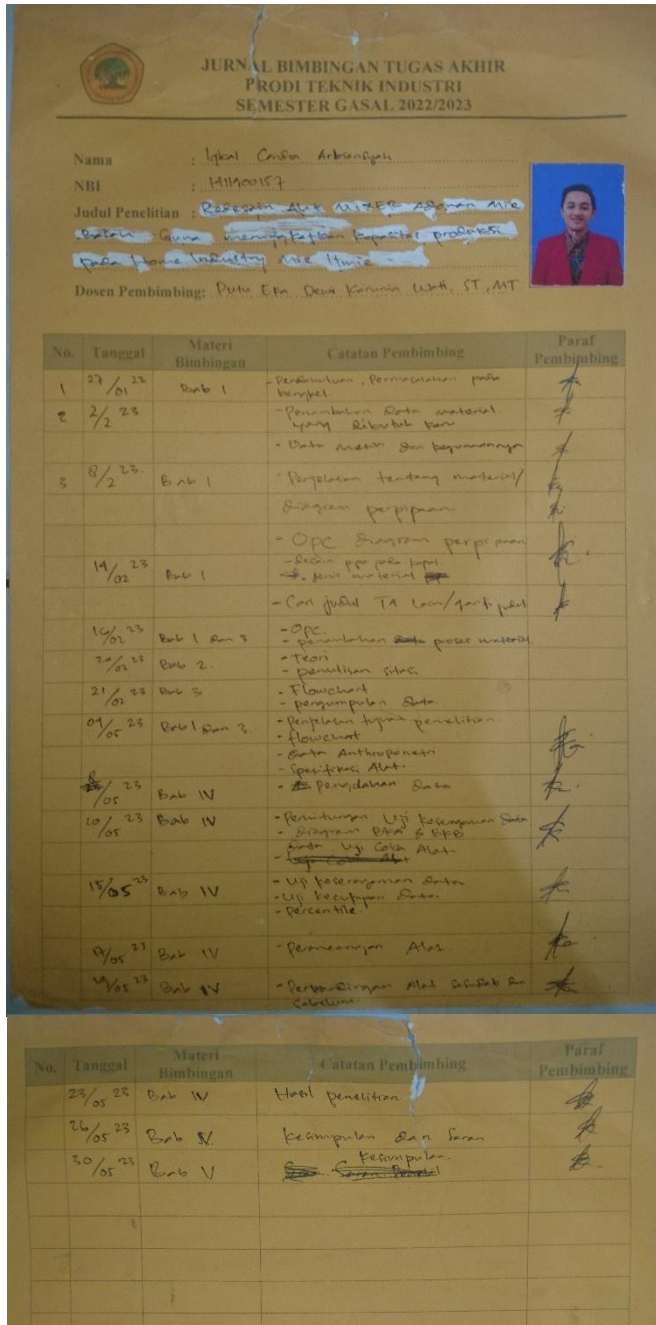 JURNAL BIMBINGAN TUGAS AKHIR
PRODI TEKNIK INDUSTRI
SEMESTER GASAL 2022/2023
Nama : Iqbal Candra
NBI : 1411900157
Judul Penelitian : Redesain Alat MIXER Adonan Mie
Guna meningkatkan kapasitas produksi
pada Home Industry Mie
Dosen Pembimbing: Putu Eka Dewi Karunia Wati, ST, MT
No. Tanggal Materi Bimbingan Catatan Pembimbing Paraf Pembimbing
1 27/01 23 Bab 1 - Pendahuluan, Permasalahan pada
bengkel.
2 2/2 23 - Penambahan Data material
yang dibutuhkan
- Data mesin dan kegunaannya
3 8/2 23 Bab 1 - Penjelasan tentang material/
diagram perpipaan
- Opc diagram perpipaan
14/02 23 Bab 1 - desain pipa pada kapal
- jenis material
- Cari judul TA lain/ganti judul
16/02 23 Bab 1 dan 3 - OPC.
- penambahan proses material
20/02 23 Bab 2. - Teori
- penulisan sitasi
21/02 23 Bab 3 - Flowchart
- pengumpulan data.
04/05 23 Bab 1 dan 3. - Penjelasan tujuan penelitian.
- flowchart
- Data Anthropometri
- Spesifikasi Alat.
8/05 23 Bab IV - Pengolahan Data
10/05 23 Bab IV - Perhitungan Uji Keseragaman Data
- Diagram BKA & BKB
Uji Coba Alat.
15/05 23 Bab IV - Uji keseragaman Data
- Uji kecukupan Data.
- Percentile.
17/05 23 Bab IV - Perancangan Alat.
19/05 23 Bab IV - Perbandingan Alat sesudah dan
Sebelum.
No. Tanggal Materi Bimbingan Catatan Pembimbing Paraf Pembimbing
23/05 23 Bab IV Hasil penelitian
26/05 23 Bab V. Kesimpulan dan Saran
30/05 23 Bab V Kesimpulan.